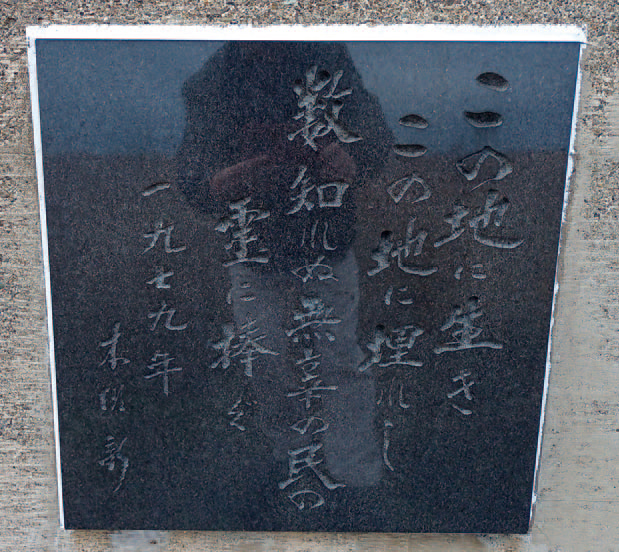 この地に生き
この地に埋れし
数知れぬ無辜の民の
霊に捧ぐ
一九七九年
本郷新